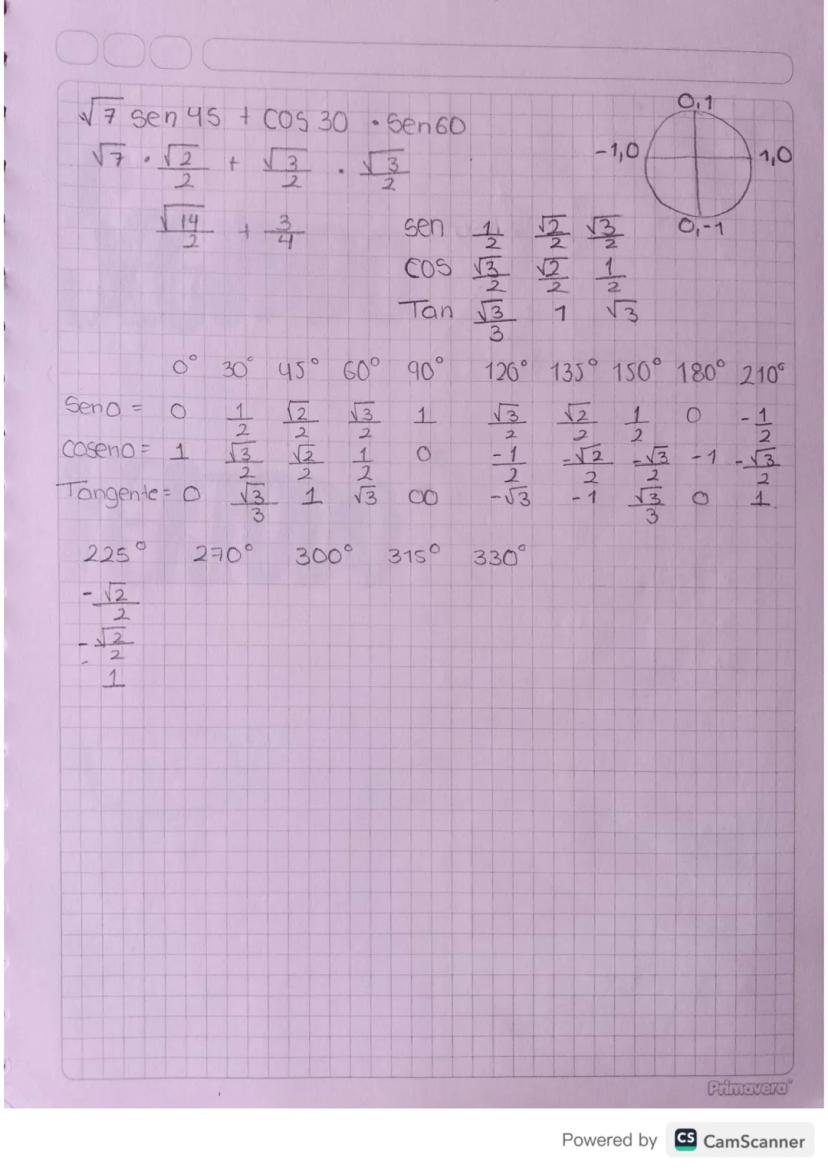 √7 sen 45 + cos 30 · sen 60
√7 · √2/2 + √3/2 · √3/2
√14/2 + 3/4
0,1
-1,0 1,0
0,-1
sen 1/2 √2/2 √3/2
cos √3/2 √2/2 1/2
Tan √3/3 1 √3
0° 30° 45° 60° 90° 120° 135° 150° 180° 210°
Seno = 0 1/2 √2/2 √3/2 1 √3/2 √2/2 1/2 0 -1/2
coseno = 1 √3/2 √2/2 1/2 0 -1/2 -√2/2 -√3/2 -1 -√3/2
Tangente = 0 √3/3 1 √3 ∞ -√3 -1 √3/3 0 1
225° 270° 300° 315° 330°
-√2/2
-√2/2
1
Primavera
Powered by CS CamScanner